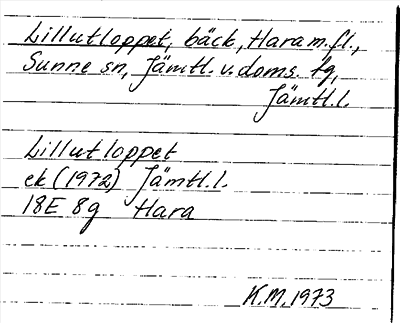 Lillutloppet, bäck, Hara m.fl.,
Sunne sn, Jämtl. v. doms. tg,
Jämtl.l.
Lillutloppet
ek (1972) Jämtl.l.
18E 8g Hara
K.M. 1973